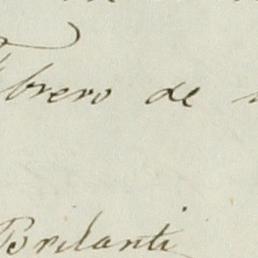 Febrero de
Brilanti